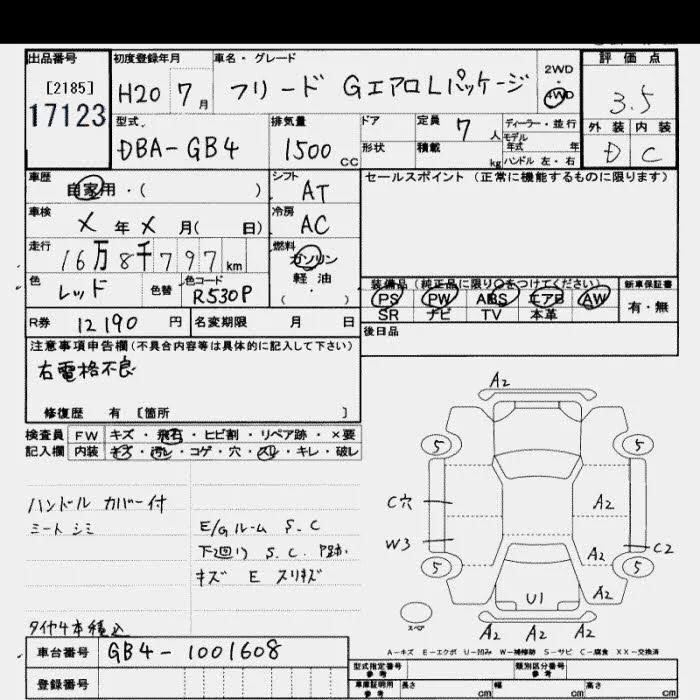 出品番号 初度登録年月 車名・グレード 2WD 評価点
[2185] H20 7月 フリード GエアロLパッケージ 4WD 3.5
17123
型式 排気量 ドア 定員 ディーラー・並行 外装 内装
DBA-GB4 1500cc 形状 積載 7人 モデル年式 年 D C
kg ハンドル 左・右
車歴 シフト セールスポイント (正常に機能するものに限ります)
自家用・( ) AT
車検 冷房
X年X月( 日) AC
走行 燃料
16万8千797km ガソリン
色 色替 色コード 軽油
レッド R530P ( ・ )
装備品(純正品に限り○をつけてください) 新車保証書
PS PW ABS エアB AW 有・無
SR ナビ TV 本革
R券 12190円 名変期限 月 日 後日品
注意事項申告欄(不具合内容等は具体的に記入して下さい)
右電格不良
修復歴 有 [箇所 ]
検査員 FW キズ・飛石・ヒビ割・リペア跡・×要
記入欄 内装 キズ・汚レ・コゲ・穴・スレ・キレ・破レ
ハンドル カバー付
シミ
E/Gルーム S.C
下回り S.C.
キズ E スリキズ
タイヤ4本積込
A2
5 5
C穴 A2
W3 A2 C2
5 5
U1 A2
スペア A2 A2 A2
A-キズ E-エクボ U-凹み W-補修跡 S-サビ C-腐食 XX-交換済
車台番号 GB4-1001608
登録番号
型式指定番号 参考 類別区分番号 参考
車庫証明用 参考 長さ cm 幅 cm 高さ cm